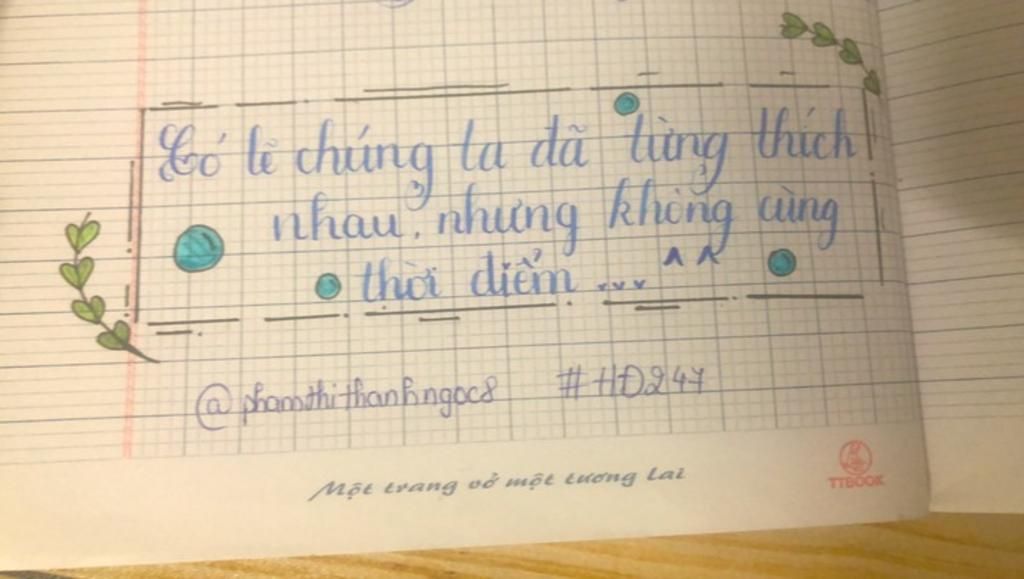 Có lẽ chúng ta đã từng thích
nhau, nhưng không cùng
thời điểm ... ^^
@phamthithanhngoc8 #HĐ247
Một trang vở một tương lai
TTBOOK